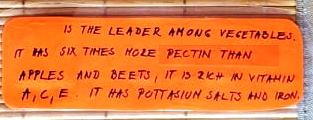 IS THE LEADER AMONG VEGETABLES.
IT HAS SIX TIMES MORE PECTIN THAN
APPLES AND BEETS, IT IS RICH IN VITAMIN
A, C, E. IT HAS POTTASIUM SALTS AND IRON.